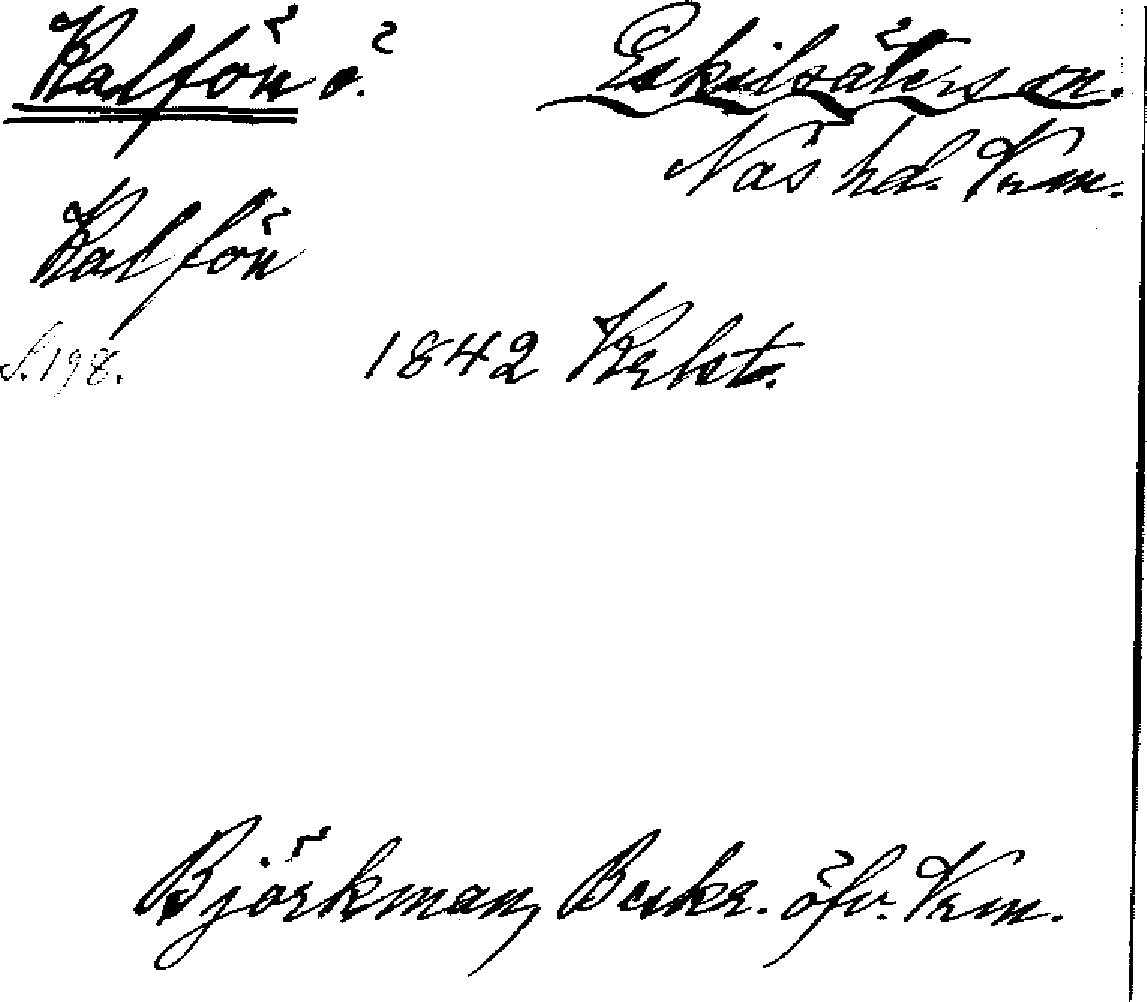 Kalfön ö. Eskilsäters sn.
Näs hd. Vrm.
Kalfön
S. 198. 1842 Krlst.
Björkman, Beskr. öfv. Vrm.